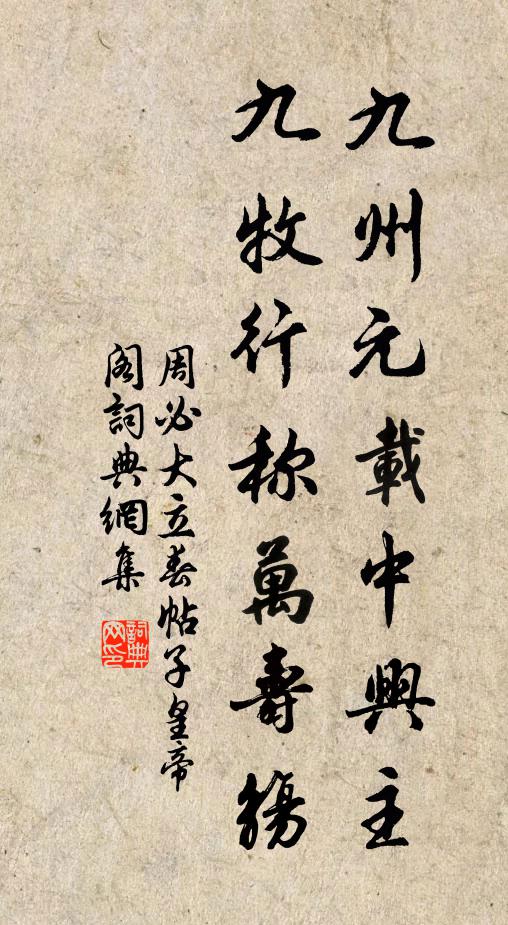 九州元載中興主
九牧行称萬壽觴
周必大立春帖子皇帝
阁詞典網集
詞典網印